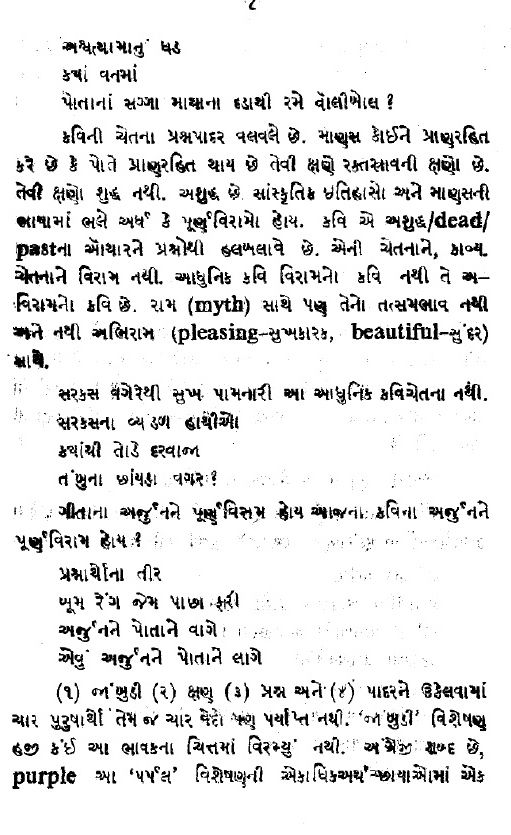 ૮
અશ્વત્થામાનું ધડ
કયાં વનમાં
પોતાનાં સગ્ગા માથાના દડાથી રમે વૉલીબોલ ?
કવિની ચેતના પ્રશ્નપાદર વલવલે છે. માણસ કોઈને પ્રાણરહિત
કરે છે કે પોતે પ્રાણરહિત થાય છે તેવી ક્ષણે રક્તસ્રાવની ક્ષણો છે.
તેવી ક્ષણો શુદ્ધ નથી. અશુદ્ધ છે સાંસ્કૃતિક ઇતિહાસો અને માણસની
ભાષામાં ભલે અર્ધ કે પૂર્ણવિરામો હોય. કવિ એ અશુદ્ધ/dead/
pastના ઓથારને પ્રશ્નોથી હલખલાવે છે. એની ચેતનાને, કાવ્ય.
ચેતનાને વિરામ નથી. આધુનિક કવિ વિરામનો કવિ નથી તે અ–
વિરામનો કવિ છે. રામ (myth) સાથે પણ તેનો તત્સમભાવ નથી
અને નથી અભિરામ (pleasing–સુખકારક, beautiful–સુંદર)
સાથે.
સરકસ વગેરેથી સુખ પામનારી આ આધુનિક કવિચેતના નથી.
સરકસના વ્યંડળ હાથીઓ
કયાંથી તોડે દરવાજા
તંબુના છાંયડા વગર ?
ગીતાના અર્જુનને પૂર્ણવિરામ હોય આજના કવિના અર્જુનને
પૂર્ણવિરામ હોય ?
પ્રશ્નાર્થોના તીર
બૂમ રેંગ જેમ પાછા ફરી
અર્જુનને પોતાને વાગે
એવું અર્જુનને પોતાને લાગે
(૧) જાંબુડી (૨) ક્ષણ (૩) પ્રશ્ન અને (૪) પાદરને ઉકેલવામાં
ચાર પુરુષાર્થો તેમ જ ચાર વેદો પણ પર્યાપ્ત નથી. 'જાંબુડી' વિશેષણ
હજી કંઈ આ ભાવકના ચિત્તમાં વિરમ્યું નથી. અંગ્રેજી શબ્દ છે,
purple આ 'પર્પલ' વિશેષણની એકાધિકઅર્થચ્છાયાઓમાં એક